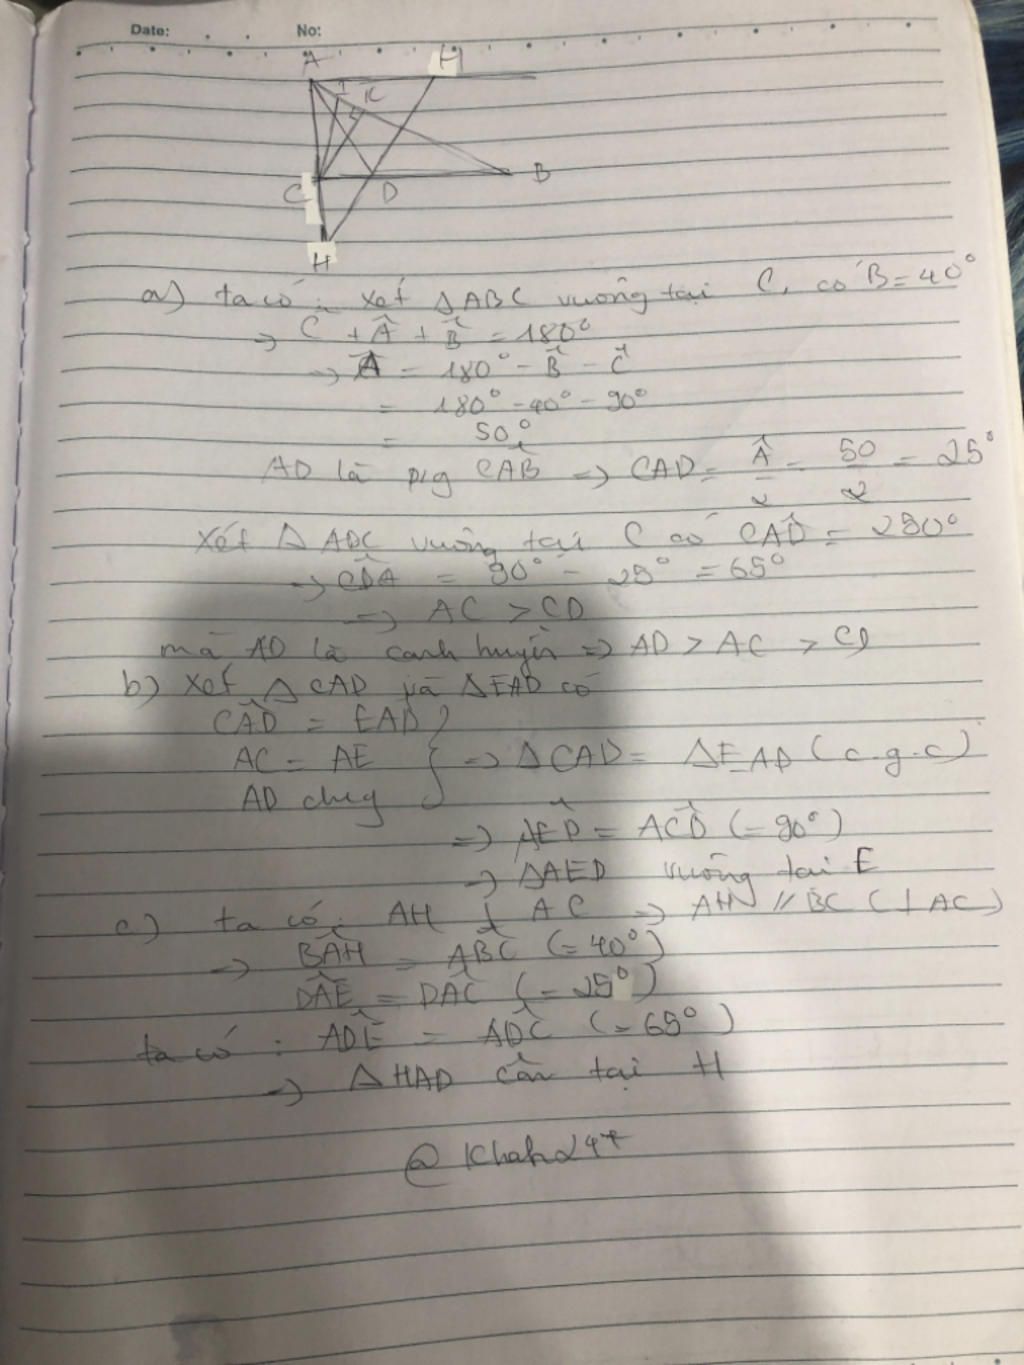 Date: No:
A H
I K
C D B
H
a) ta có: xét △ABC vuông tại C, có B̂ = 40°
⇒ Ĉ + Â + B̂ = 180°
⇒ Â = 180° - B̂ - Ĉ
= 180° - 40° - 90°
= 50°
AD là p/g CAB̂ ⇒ CAD = Â/2 = 50/2 = 25°
Xét △ADC vuông tại C có CAD̂ = 250°
⇒ CD̂A = 90° - 25° = 65°
⇒ AC > CD
mà AD là cạnh huyền ⇒ AD > AC > CD
b) Xét △CAD và △EAD có
CÂD = EAD
AC = AE ⇒ △CAD = △EAD (c.g.c)
AD chug
⇒ AÊD = AĈD (= 90°)
⇒ △AED vuông tại E
c) ta có: AH ⊥ AC ⇒ AH // BC (⊥ AC)
⇒ BÂH = AB̂C (= 40°)
DÂE = DÂC (= 25°)
ta có: AD̂E = AD̂C (= 65°)
⇒ △HAD cân tại H
@Khah247